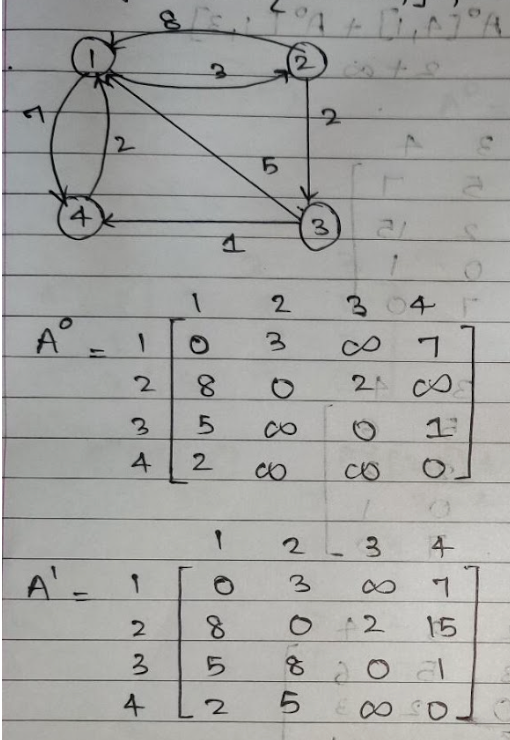 8
1 2
3
7 2 5 2
4 3
1
1 2 3 4
A⁰ = 1 [ 0 3 ∞ 7
2 8 0 2 ∞
3 5 ∞ 0 1
4 2 ∞ ∞ 0 ]
1 2 3 4
A¹ = 1 [ 0 3 ∞ 7
2 8 0 2 15
3 5 8 0 1
4 2 5 ∞ 0 ]